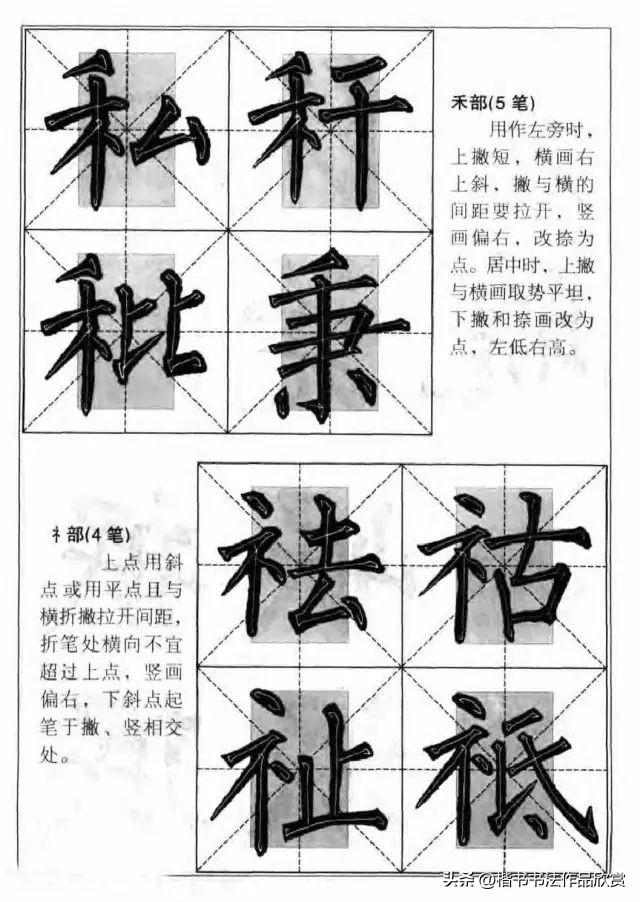 私 秆
秕 秉
禾部(5 笔)
用作左旁时，
上撇短，横画右
上斜，撇与横的
间距要拉开，竖
画偏右，改捺为
点。居中时，上撇
与横画取势平坦，
下撇和捺画改为
点，左低右高。
礻部(4 笔)
上点用斜
点或用平点且与
横折撇拉开间距，
折笔处横向不宜
超过上点，竖画
偏右，下斜点起
笔于撇、竖相交
处。
祛 祜
祉 祗
头条 @楷书书法作品欣赏